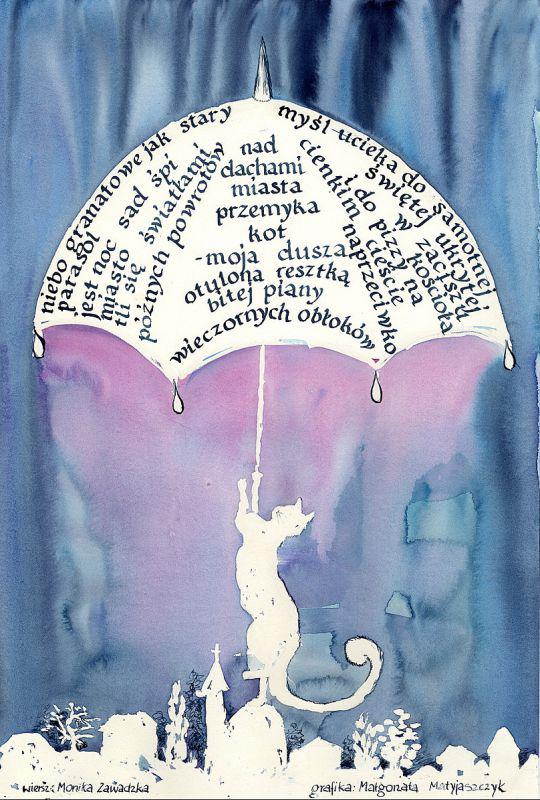 niebo granatowe jak stary
parasol
jest noc sad śpi
miasto
tli się światłami
późnych powrotów
nad
dachami
miasta
przemyka
kot
-moja dusza
otulona resztką
bitej piany
wieczornych obłoków
myśl ucieka do samotnej
świętej ukrytej
w zaciszu
kościoła
i do pizzy na
cienkim cieście
naprzeciwko
wiersz: Monika Zawadzka
grafika: Małgorzata Matyjaszczyk